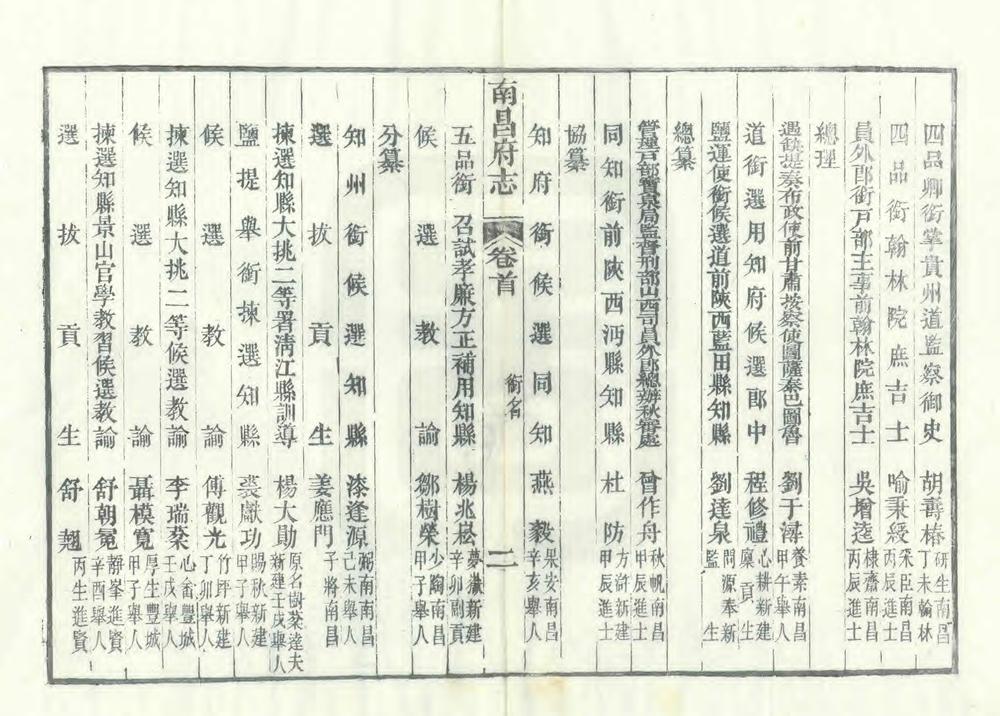 四品卿銜掌貴州道監察御史 胡壽椿 研生南昌丁未翰林
四品銜翰林院庶吉士 喻秉綬 采臣南昌丙辰進士
員外郎銜戶部主事前翰林院庶吉士 吳增逵 棣齋南昌丙辰進士
總理
遇缺提奏布政使前甘肅按察使圖薩泰巴圖魯 劉于潯 養素南昌甲午舉人
道銜選用知府候選郎中 程修禮 心耕新建廩貢生
鹽運使銜候選道前陝西藍田縣知縣 劉達泉 問源奉新監生
總纂
管理戶部寶泉局監督刑部山西司員外郎總辦秋審處 曾作舟 秋帆南昌甲辰進士
同知銜前陝西沔縣知縣 杜防 方新建甲辰進士
協纂
知府銜候選同知 燕毅 果安南昌辛亥舉人
南昌府志 卷首 銜名 二
五品銜 召試孝廉方正補用知縣 楊兆崧 夢新建辛卯副貢
候選教諭 鄒樹榮 少陶南昌甲子舉人
分纂
知州銜候選知縣 漆逢源 弼南南昌己未舉人
選拔貢生 姜應門 子將南昌
揀選知縣大挑二等署清江縣訓導 楊大勛 原名樹棻達夫新建壬戌舉人
鹽提舉銜揀選知縣 裘獻功 陽秋新建甲子舉人
候選教諭 傅觀光 竹坪新建丁卯舉人
揀選知縣大挑二等候選教諭 李瑞棻 心畬豐城壬戌舉人
候選教諭 聶模寬 厚生豐城甲子舉人
揀選知縣景山官學教習候選教諭 舒朝冕 靜峯進賢辛酉舉人
選拔貢生 舒翹 丙生進賢